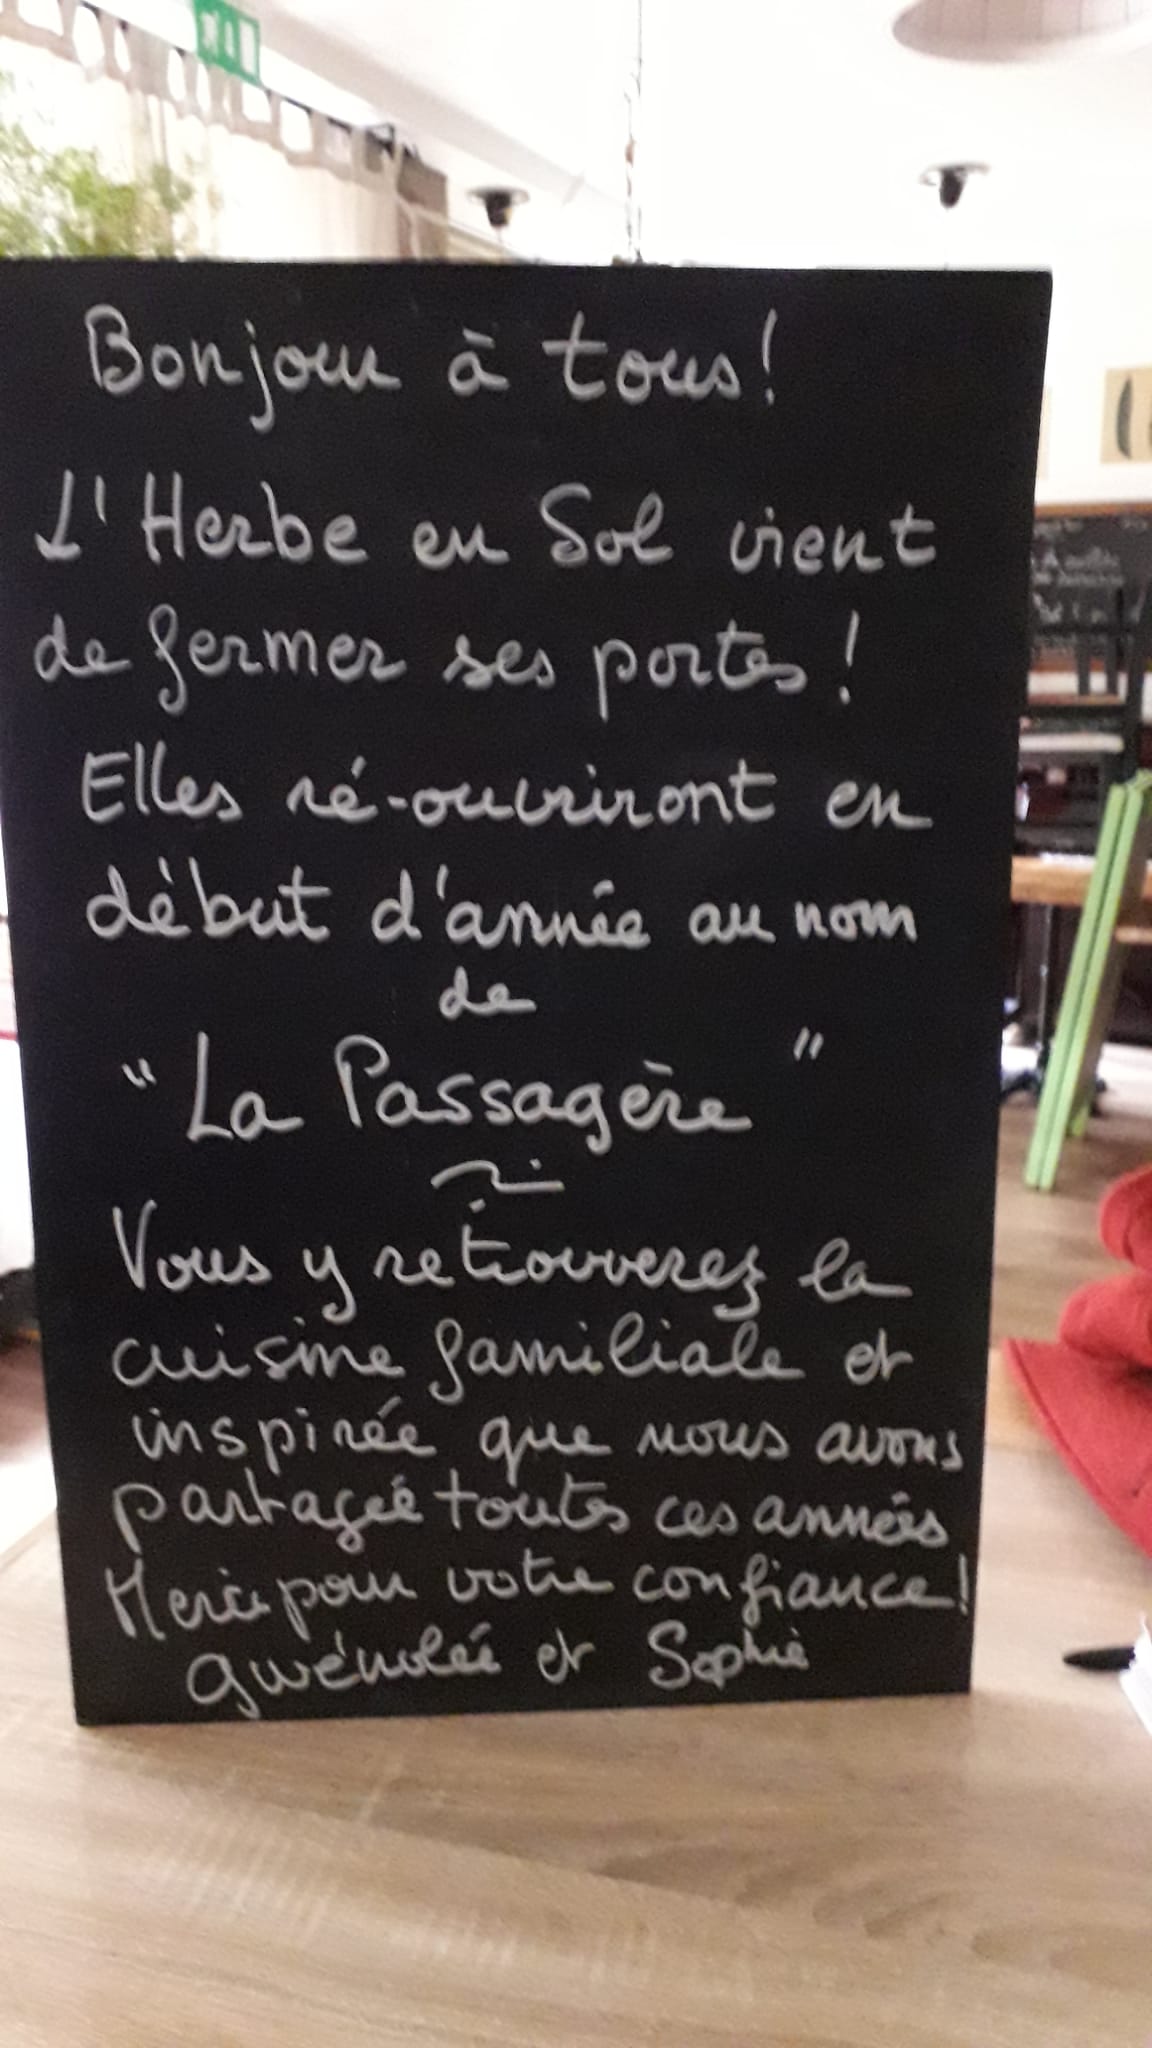 Bonjour à tous!
L'Herbe en Sol vient
de fermer ses portes!
Elles ré-ouvriront en
début d'année au nom
de
"La Passagère"
Vous y retrouverez la
cuisine familiale et
inspirée que nous avons
partagée toutes ces années
Merci pour votre confiance!
Gwénolée et Sophie